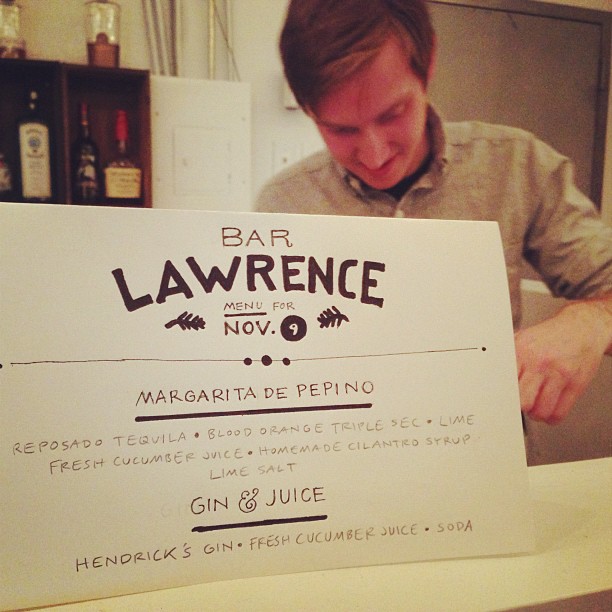 BAR
LAWRENCE
MENU FOR
NOV. 9
MARGARITA DE PEPINO
REPOSADO TEQUILA • BLOOD ORANGE TRIPLE SEC • LIME
FRESH CUCUMBER JUICE • HOMEMADE CILANTRO SYRUP
LIME SALT
GIN & JUICE
HENDRICK'S GIN • FRESH CUCUMBER JUICE • SODA